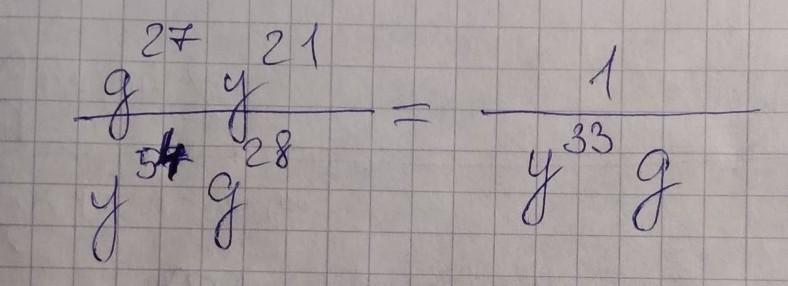 g^27 y^21 / y^54 g^28 = 1 / y^33 g